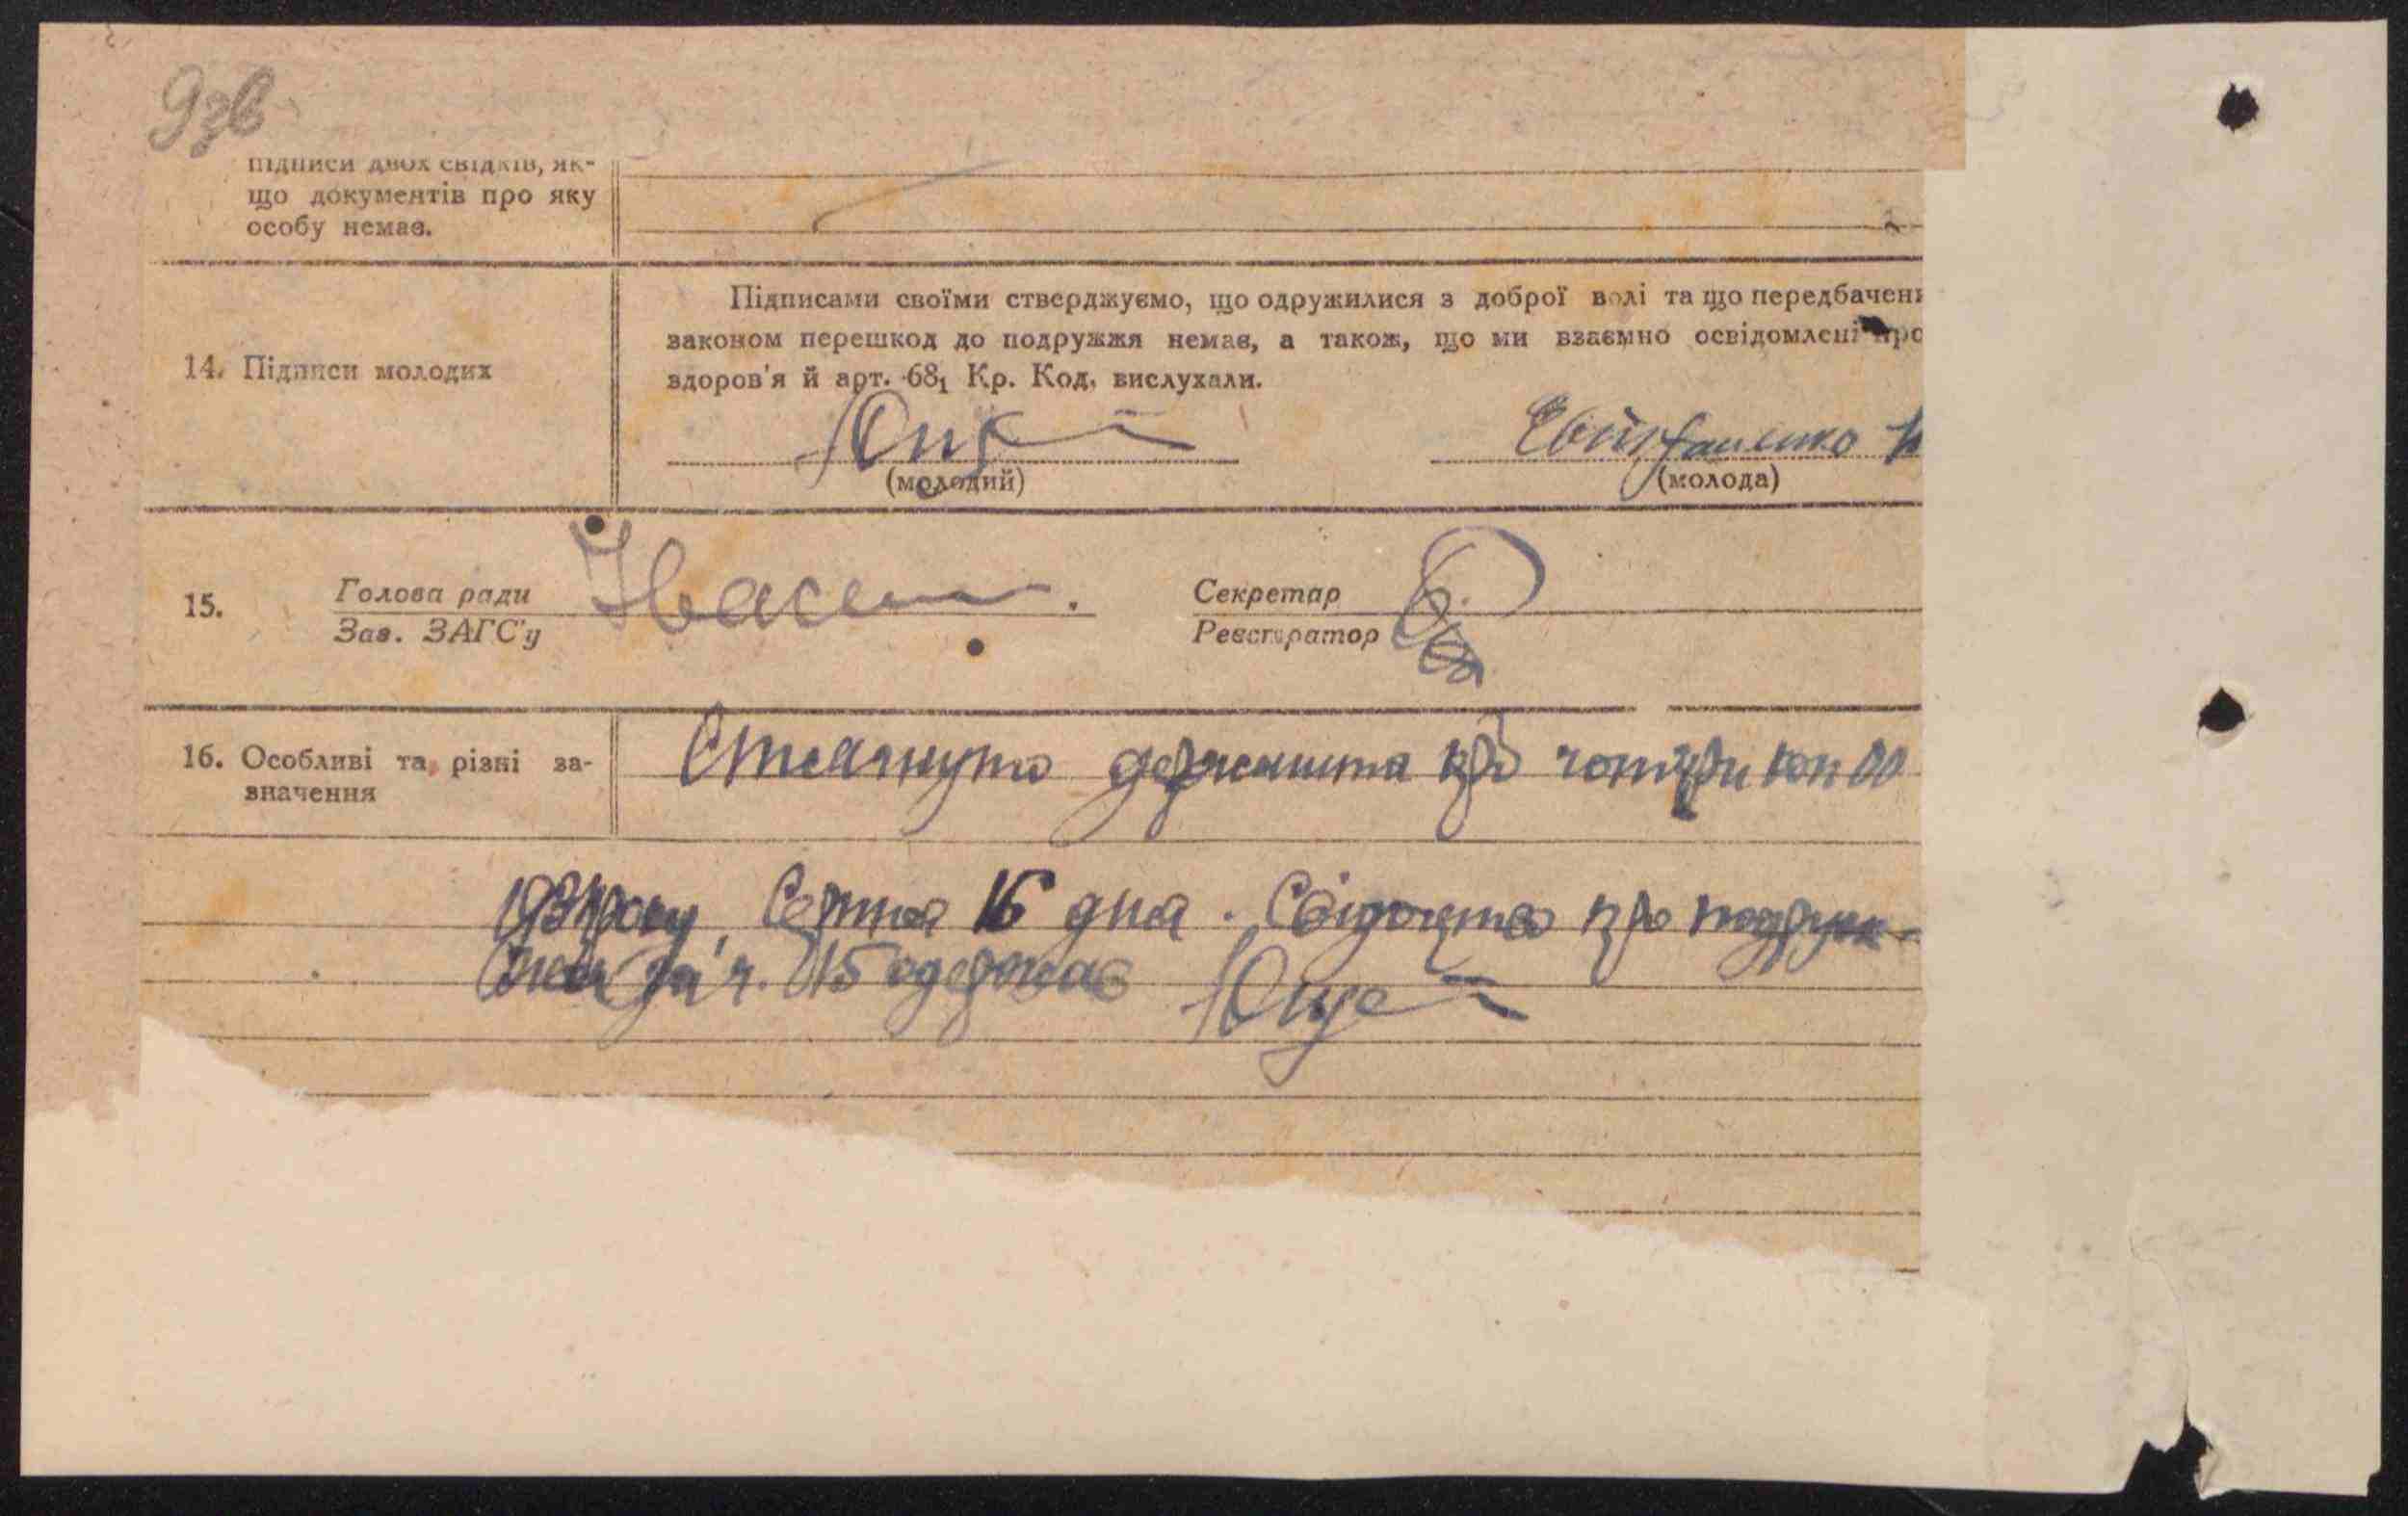 9зв
підписи двох свідків, як-
що документів про яку
особу немає.
14. Підписи молодих
Підписами своїми стверджуємо, що одружилися з доброї волі та що передбачени
законом перешкод до подружжя немає, а також, що ми взаємно освідомлені про
здоров'я й арт. 68₁ Кр. Код. вислухали.
(молодий)
(молода)
15.
Голова ради
Зав. ЗАГС'у
Секретар
Реєстратор
16. Особливі та різні за-
значення
Стягнуто держмита крб чотири коп 00
року, Серпня 16 дня. Свідоцтво про подруж-
за ч. 215 одержав